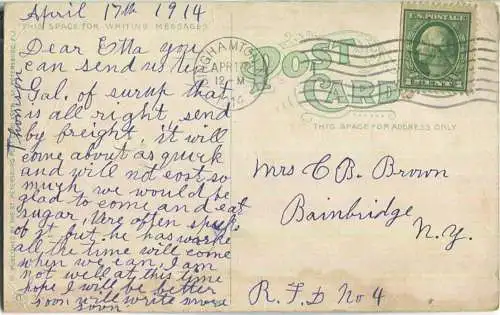 April 17th 1914
THIS SPACE FOR WRITING MESSAGES
Dear Etta you
can send us up
Gal. of surup that
is all right, send
by freight, it will
come about as quick
and will not cost so
much, we would be
glad to come and eat
sugar, we often speak
of it but he has worke
all the time will come
when we can, I am
not well at this time
hope I will be better
soon will write more
soon
Thomson
BINGHAMTON
APR 17
12-M
1914
U.S. POSTAGE
1 CENT 1
POST
CARD
THIS SPACE FOR ADDRESS ONLY
Mrs C B. Brown
Bainbridge
N.Y.
R. F. D No 4